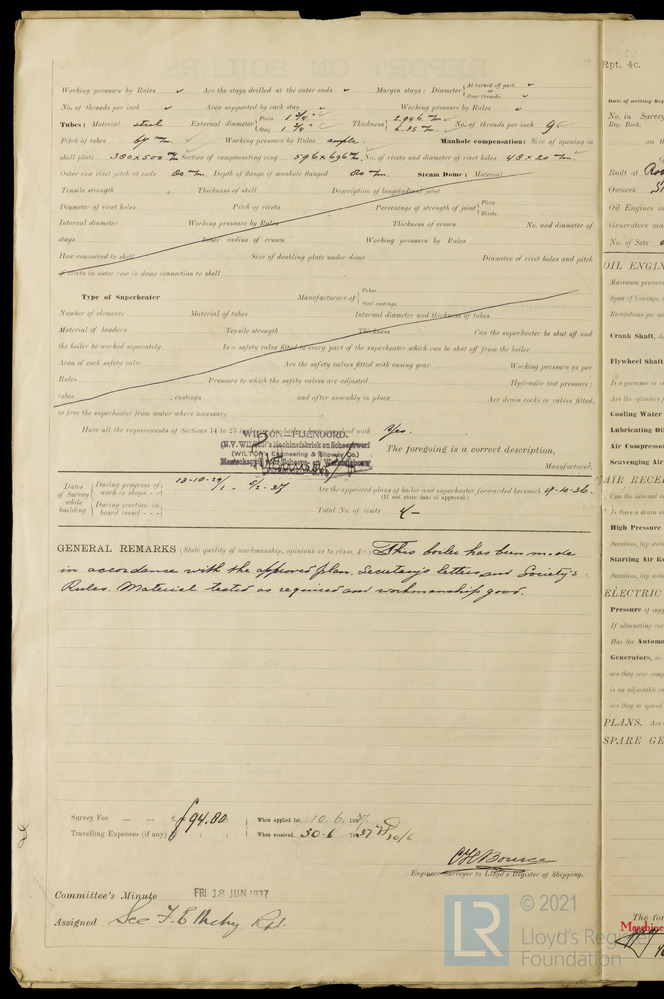 Working pressure by Rules ✓ Are the stays drilled at the outer ends ✓ Margin stays: Diameter { At turned off part, ✓ or Over threads ✓
No. of threads per inch ✓ Area supported by each stay ✓ Working pressure by Rules ✓
Tubes: Material steel External diameter { Plain 1 3/4" Stay 1 3/4" Thickness { 2,946 m/m. 6.35 m/m. No. of threads per inch 9
Pitch of tubes 64 m/m. Working pressure by Rules ample. Manhole compensation: Size of opening in
shell plate 300 x 500 m/m Section of compensating ring 596 x 696 m/m. No. of rivets and diameter of rivet holes 48 x 20 m/m.
Outer row rivet pitch at ends 80 m/m. Depth of flange if manhole flanged 80 m/m. Steam Dome: Material
Tensile strength Thickness of shell Description of longitudinal joint
Diameter of rivet holes Pitch of rivets Percentage of strength of joint { Plate Rivets
Internal diameter Working pressure by Rules Thickness of crown No. and diameter of
stays Inner radius of crown Working pressure by Rules
How connected to shell Size of doubling plate under dome Diameter of rivet holes and pitch
of rivets in outer row in dome connection to shell
Type of Superheater Manufacturers of { Tubes Steel castings
Number of elements Material of tubes Internal diameter and thickness of tubes
Material of headers Tensile strength Thickness Can the superheater be shut off and
the boiler be worked separately Is a safety valve fitted to every part of the superheater which can be shut off from the boiler
Area of each safety valve Are the safety valves fitted with easing gear Working pressure as per
Rules Pressure to which the safety valves are adjusted Hydraulic test pressure:
tubes , castings and after assembly in place Are drain cocks or valves fitted
to free the superheater from water where necessary
Have all the requirements of Sections 14 to 23 complied with Yes.
WILTON—FIJENOORD.
(N.V. WILTON's Machinefabriek en Scheepswerf
(WILTON's Engineering & Slipway Co.)
The foregoing is a correct description,
Manufacturer.
Dates of Survey while building { During progress of work in shops - - } 13-10-29/1 - 5/2-37 Are the approved plans of boiler and superheater forwarded herewith 17-10-36.
(If not state date of approval.)
{ During erection on board vessel - - - } Total No. of visits 4—
GENERAL REMARKS (State quality of workmanship, opinions as to class, &c.) This boiler has been made
in accordance with the approved plan, Secretary's letters and Society's
Rules. Material tested as required and workmanship good.
Survey Fee ... ... £ f94.80 When applied for, 10.6.1937.
Travelling Expenses (if any) £ : : When received, 30-6 1937 30/6
Engineer Surveyor to Lloyd's Register of Shipping.
Committee's Minute FRI 18 JUN 1937
Assigned See F.E. Rpt.
© 2021
Lloyd's Register
Foundation
LR
Rpt. 4c.
Date of writing Rep
No. in Survey
Reg. Book.
on th
Built at
Owners
Oil Engines m
Generators ma
No. of Sets
OIL ENGIN
Maximum pressure
Span of bearings,
Revolutions per m
Crank Shaft,
Flywheel Shaft
Is a governor
Are the cylinders
Cooling Water
Lubricating Oil
Air Compressor
Scavenging Air
AIR RECEI
Can the internal
Is there a drain
High Pressure
Seamless, lap weld
Starting Air Re
Seamless, lap weld
ELECTRIC
Pressure of supp
If alternating cur
Has the Automa
Generators, do
are they over comp
is an adjustable
are they so spaced
PLANS. Are
SPARE GE
The for
Machine